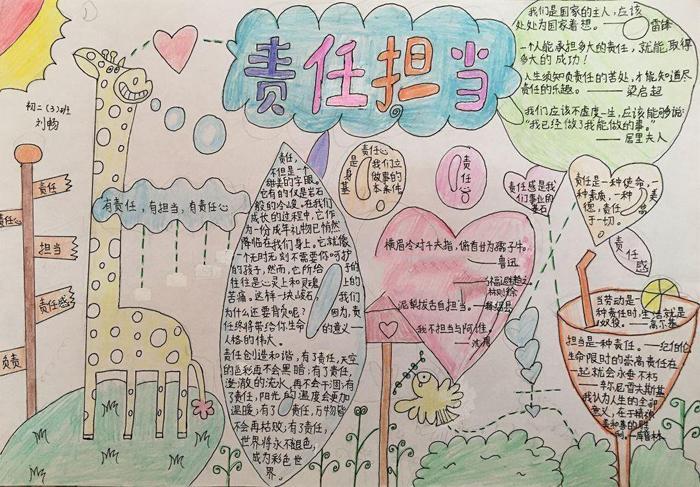 责任担当
初二(3)班
刘畅
责任
责任心
担当
责任感
负责
有责任，有担当，有责任心
责任，
不但是一个
甜美的字眼，
它有的仅是岩石
般的冷峻。在我们
成长的过程中，它作
为一份成年礼物已悄然
降临在我们身上。它就像
一个无时无刻不需要你呵护
的孩子，然而，它所给予的
往往是心灵上和灵魂上的
苦痛。这样一块峻石，我们
为什么还要背负呢？因为，
责任终将带给你生命的意义——
人格的伟大。
责任创造和谐，有了责任，天空
的色彩不会黑暗；有了责任，
澎湃的流水再不会干涸；有
了责任，阳光的温度会更加
温暖；有了责任，万物能
不会再枯败；有了责任，
世界将永不褪色，
成为彩色世
界。
责任心
是我们立
身做事的
基本条件
责任心
责任感是我
们事业的
基石
我们是国家的主人，应该
处处为国家着想。——雷锋
一个人能承担多大的责任，就能取得
多大的成功！
人生须知负责任的苦处，才能知道尽
责任的乐趣。——梁启超
我们应该不虚度一生，应该能够说：
“我已经做了我能做的事。”
——居里夫人
责任是一种使命，一
种素质，一种美
德，责任
于一切。
责任
感
横眉冷对千夫指，俯首甘为孺子牛。
——鲁迅
林则徐
我不担当与阿谁。
当劳动是一
种责任时，生活就是
奴役。——高尔基
担当是一种责任。
生命限时的崇高责任在
一起就会永垂不朽
我认为人生的全部
意义，在于